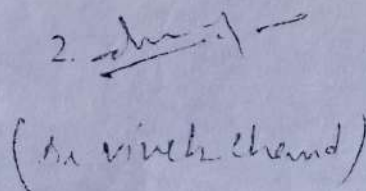 2.
(Dr vivek chand)